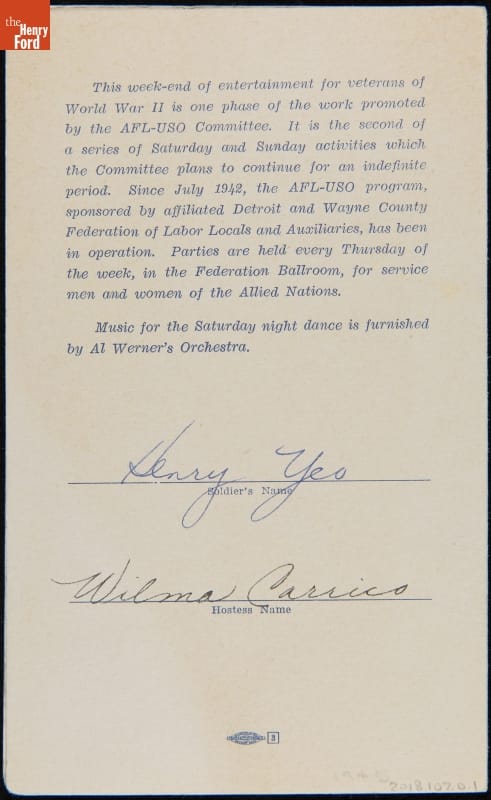 the
Henry
Ford
This week-end of entertainment for veterans of
World War II is one phase of the work promoted
by the AFL-USO Committee. It is the second of
a series of Saturday and Sunday activities which
the Committee plans to continue for an indefinite
period. Since July 1942, the AFL-USO program,
sponsored by affiliated Detroit and Wayne County
Federation of Labor Locals and Auxiliaries, has been
in operation. Parties are held every Thursday of
the week, in the Federation Ballroom, for service
men and women of the Allied Nations.
Music for the Saturday night dance is furnished
by Al Werner's Orchestra.
Henry Yeo
Soldier's Name
Wilma Carrico
Hostess Name
3
2018.107.0.1